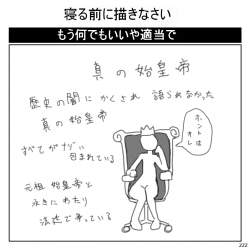 寝る前に描きなさい
もう何でもいいや適当で
真の始皇帝
歴史の闇にかくされ 語られなかった
真の始皇帝
ホントは
オレ
すべてがナゾに
包まれている
元祖 始皇帝と
永きにわたり
法廷で争っている